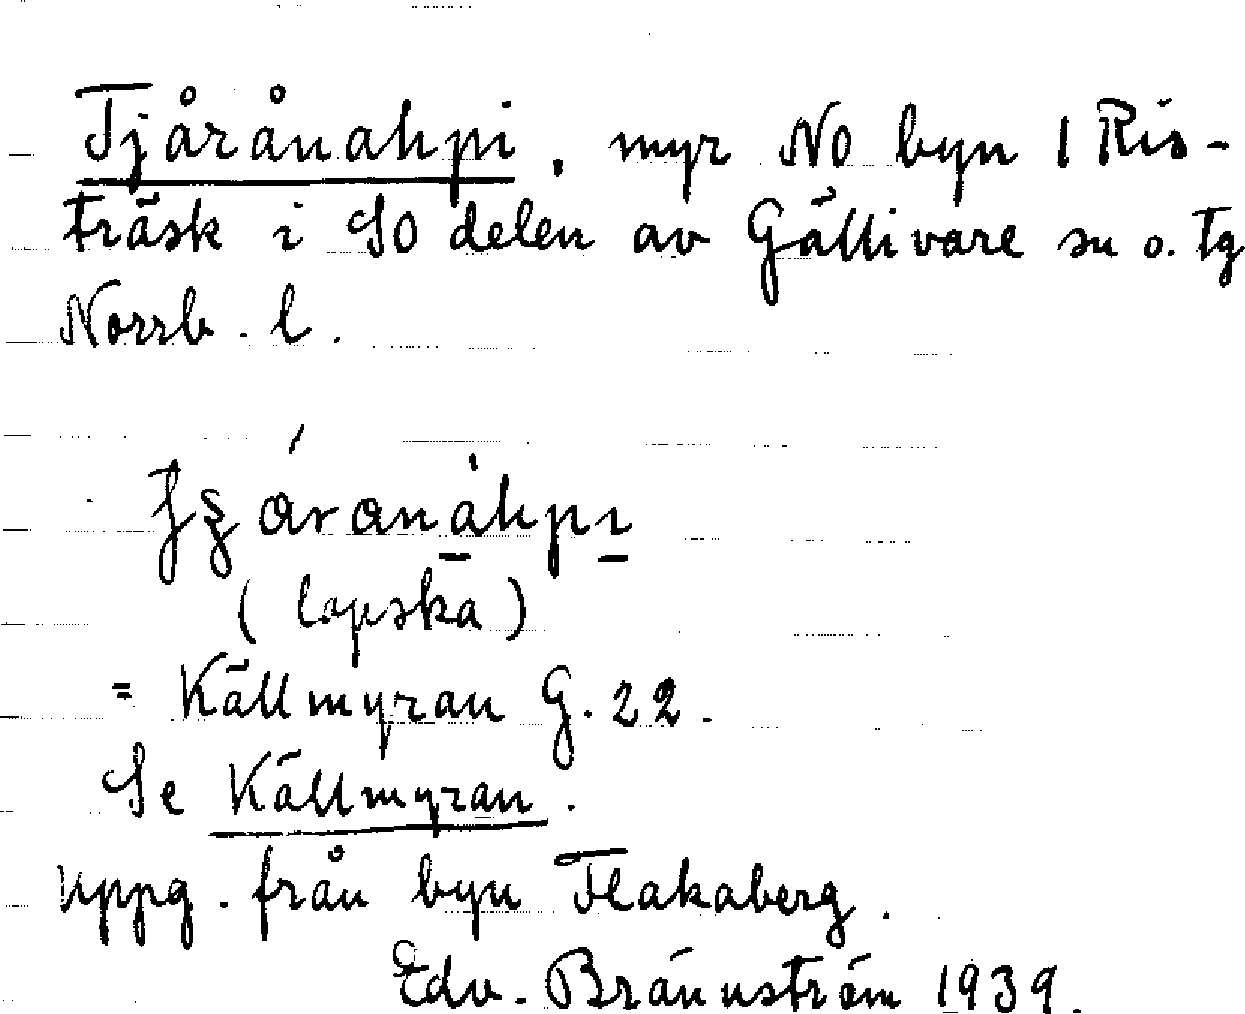 Tjårånahpi, myr NO byn 1 Ris-
träsk i SO delen av Gällivare sn o. tg
Norrb. l.
áranáhpı
(lapska)
= Källmyran G. 22.
Se Källmyran.
uppg. från byn Flakaberg.
Edv. Brännström 1939.